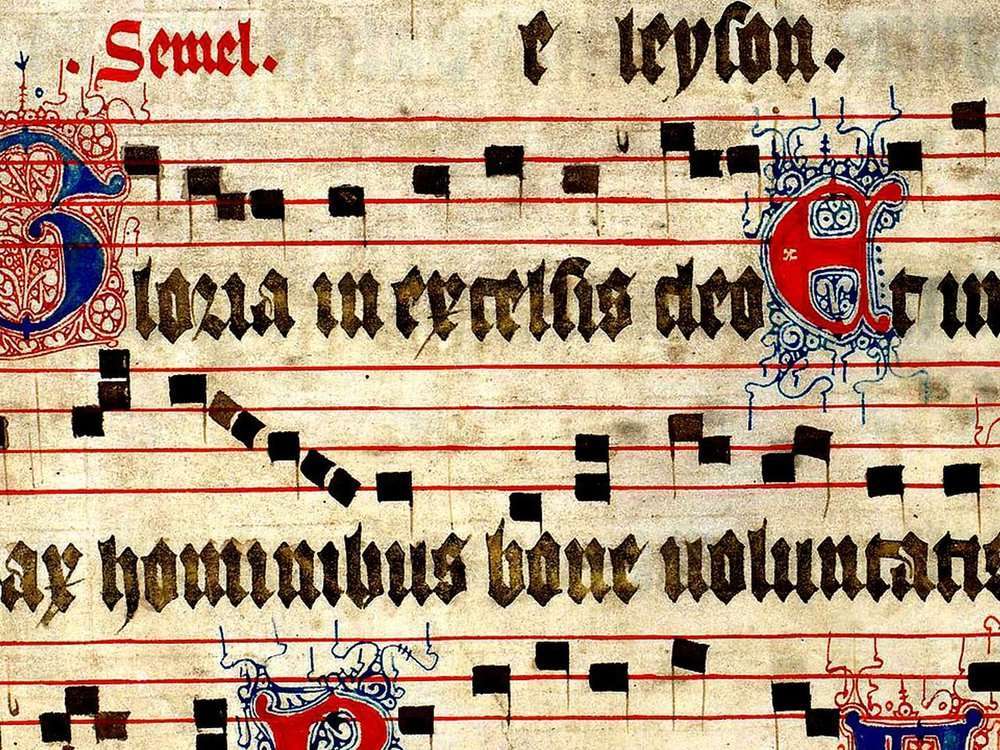 Semel. e leyson.
Gloria in excelsis deo Et in
ax hominibus bone uoluntatis